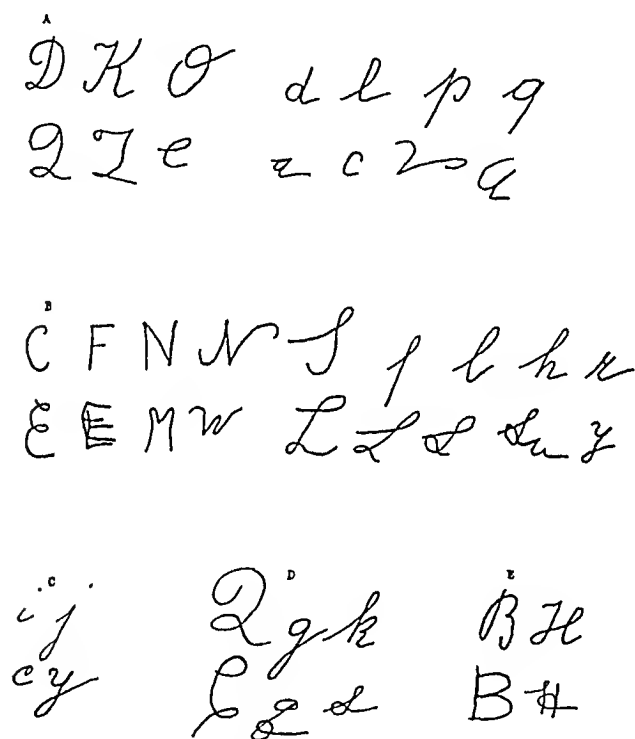 A
D K O d l p q
Q I e z c a
B
C F N N S f l h r
E E M W L L S S u y
C
i j
c y
D
Q g k
E
B H
B H